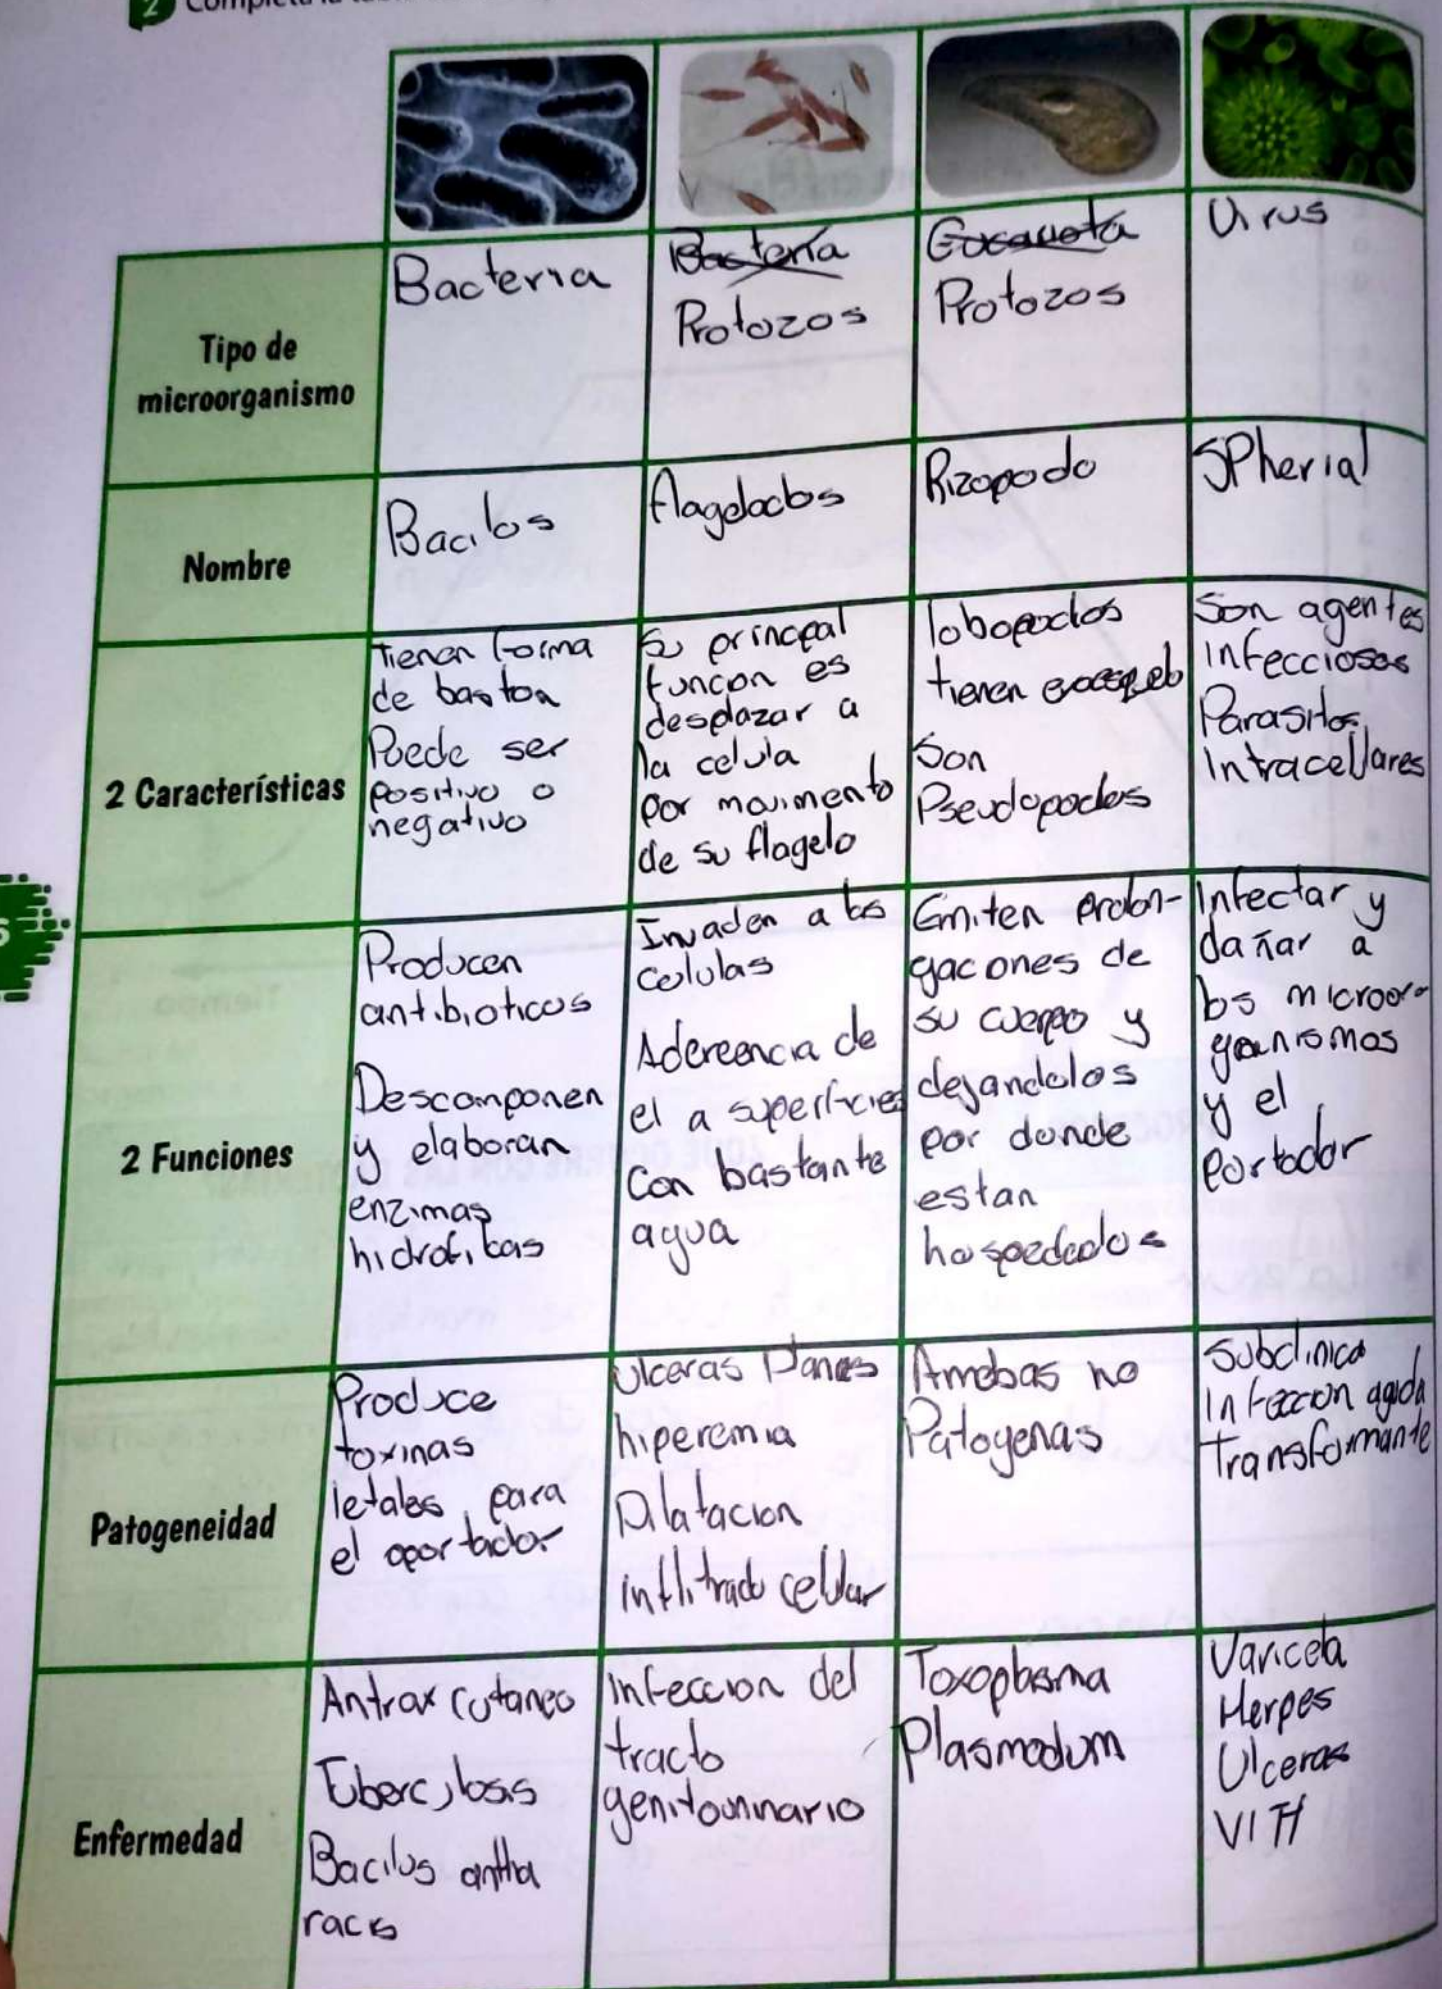 2 Completa la
Tipo de
microorganismo
Bacteria
Bacteria
Protozos
Eucauota
Protozos
Virus
Nombre
Bacilos
flagelados
Rizopodo
SPherial
2 Características
Tienen forma
de baston
Puede ser
positivo o
negativo
Su principal
funcon es
desplazar a
la celula
por movimento
de su flagelo
lobopodos
tienen
Son
Pseudopodos
Son agentes
infecciosos
Parasitos
Intracellares
2 Funciones
Producen
antibioticos
Descomponen
y elaboran
enzimas
hidrofilicas
Invaden a las
celulas
Adereencia de
el a superficies
con bastante
agua
Emiten prolon-
gacones de
su cuerpo y
dejandolos
por donde
estan
hospedados
Infectar y
dañar a
los microor-
ganismos
y el
portador
Patogeneidad
Produce
toxinas
letales para
el oportador
Ulceras Planas
hiperemia
Dilatacion
infiltrado celular
Amebas no
Patogenas
Subclinica
Infeccion aguda
Transformante
Enfermedad
Antrax cutaneo
Tuberculosis
Bacilus antha
racis
Infeccion del
tracto
genitourinario
Toxoplasma
Plasmodum
Varicela
Herpes
Ulceras
VIH
Tiempo